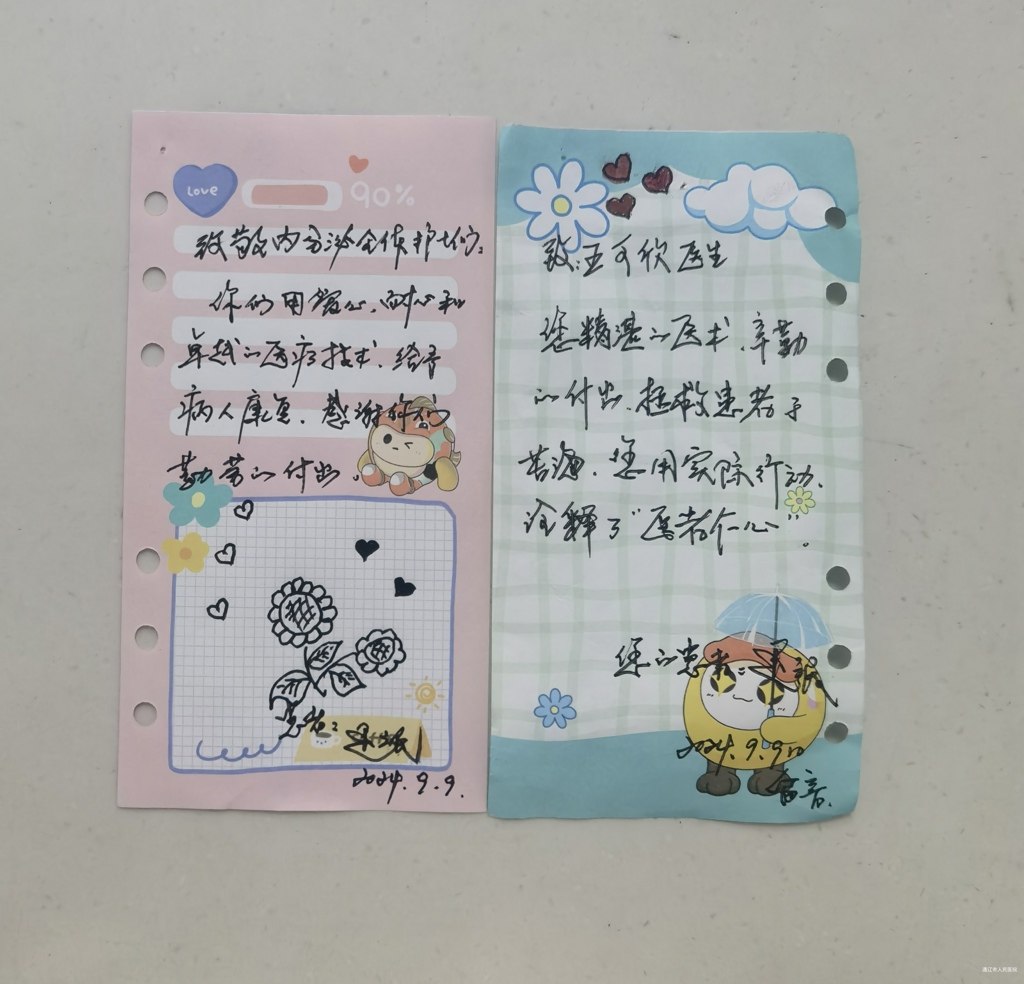 Love
90%
致敬内分泌全体护士们:
你们用爱心、耐心和
卓越的医疗技术、给予
病人康复、感谢你们
勤劳的付出。
患者:
2024.9.9.
致:王可欣医生
您精湛的医术、辛勤
的付出、拯救患者于
苦海、您用实际行动、
诠释了“医者仁心”。
您的患者:
2024.9.9日
留言.